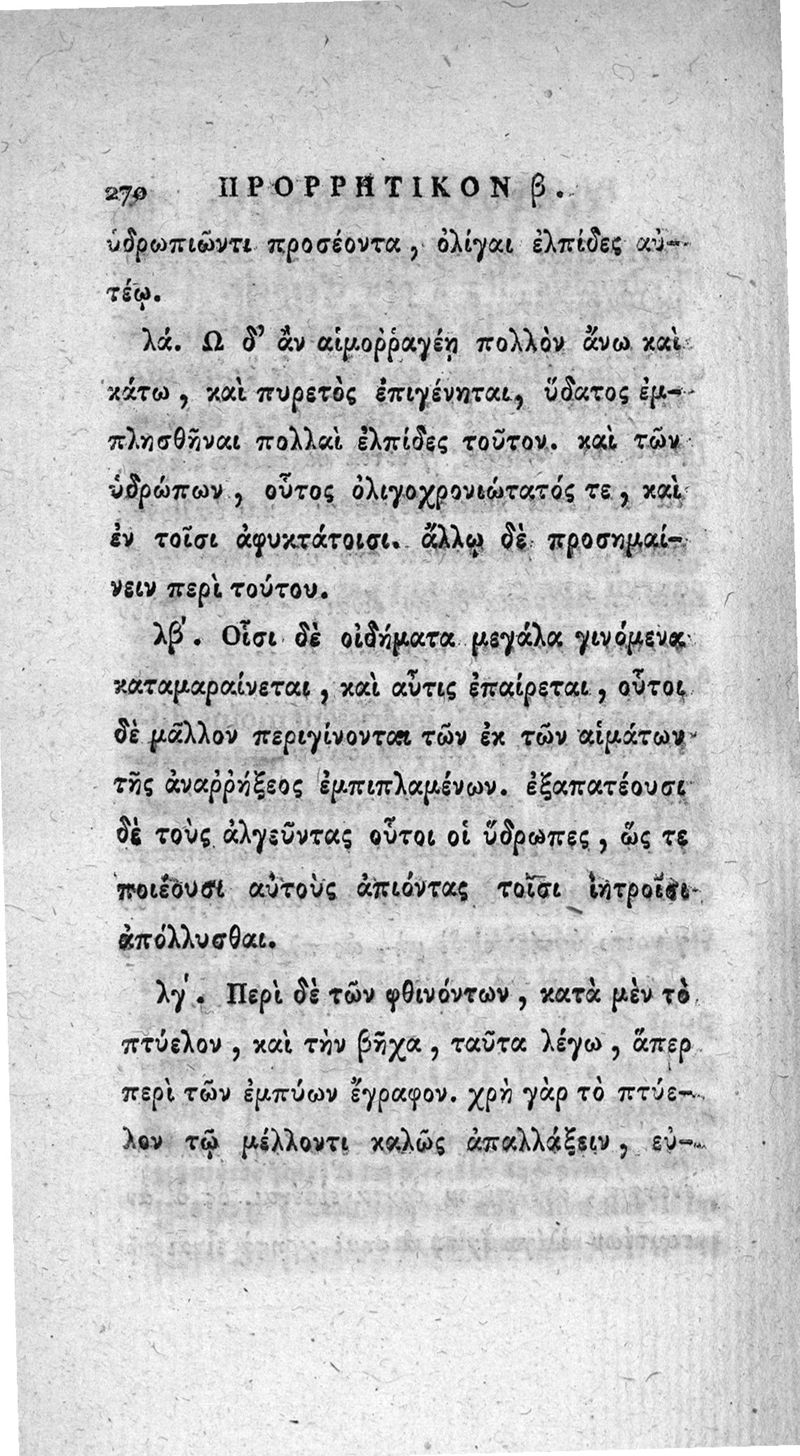 270 ΠΡΟΡΡΗΤΙΚΟΝ β.
ὑδρωπιῶντι προσέοντα, ὀλίγαι ἐλπίδες αὐ-
τέῳ.
λά. Ω δ’ ἂν αἱμοῤῥαγέῃ πολλὸν ἄνω καὶ
κάτω, καὶ πυρετὸς ἐπιγένηται, ὕδατος ἐμ-
πλησθῆναι πολλαὶ ἐλπίδες τοῦτον. καὶ τῶν
ὑδρώπων, οὗτος ὀλιγοχρονιώτατός τε, καὶ
ἐν τοῖσι ἀφυκτάτοισι. ἄλλῳ δὲ προσημαί-
νειν περὶ τούτου.
λβ΄. Οἷσι δὲ οἰδήματα μεγάλα γινόμενα
καταμαραίνεται, καὶ αὖτις ἐπαίρεται, οὗτοι
δὲ μᾶλλον περιγίνονται τῶν ἐκ τῶν αἱμάτων
τῆς ἀναῤῥήξεος ἐμπιπλαμένων. ἐξαπατέουσι
δὲ τοὺς ἀλγεῦντας οὗτοι οἱ ὕδρωπες, ὥς τε
ποιέουσι αὐτοὺς ἀπιόντας τοῖσι ἰητροῖσι
ἀπόλλυσθαι.
λγ΄. Περὶ δὲ τῶν φθινόντων, κατὰ μὲν τὸ
πτύελον, καὶ τὴν βῆχα, ταῦτα λέγω, ἅπερ
περὶ τῶν ἐμπύων ἔγραφον. χρὴ γὰρ τὸ πτύε-
λον τῷ μέλλοντι καλῶς ἀπαλλάξειν, εὐ-